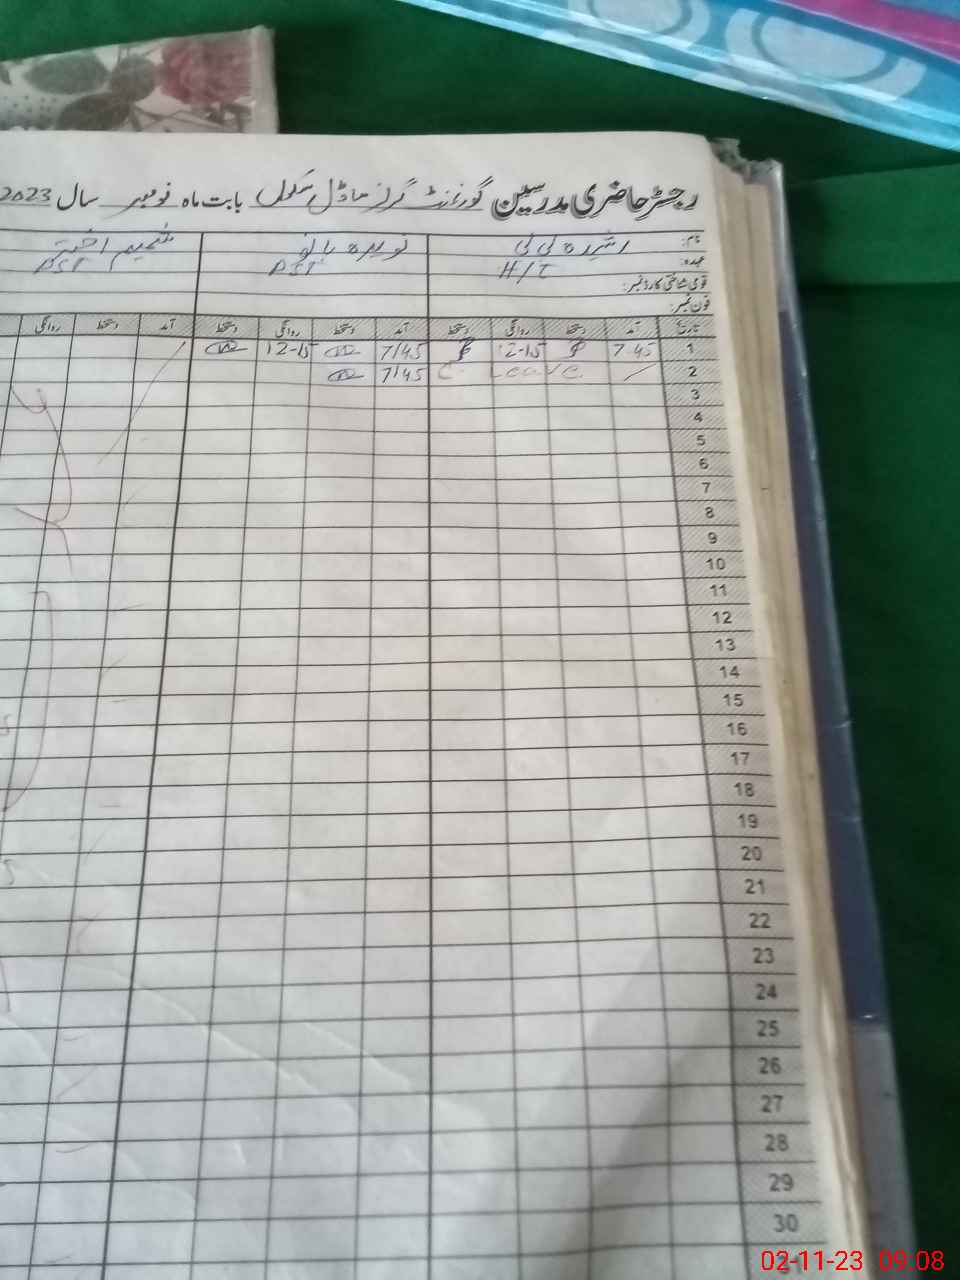 رجسٹر حاضری مدرسین گورنمنٹ گرلز ماڈل سکول بابت ماہ نومبر سال 2023
نام: رشیدہ بی بی نویدہ بانو شمیم اختر
عہدہ: H/T PST PST
قومی شناختی کارڈ نمبر:
فون نمبر:
تاریخ آمد دستخط روانگی دستخط آمد دستخط روانگی دستخط آمد دستخط روانگی
1 7-45 12-15 7/45 12-15
2 C- Leave 7/45
3
4
5
6
7
8
9
10
11
12
13
14
15
16
17
18
19
20
21
22
23
24
25
26
27
28
29
30
02-11-23 09:08